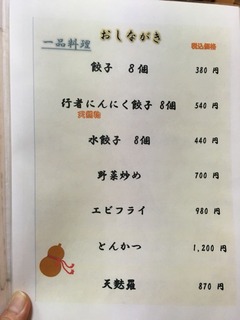 おしながき
一品料理 税込価格
餃子 8個 380 円
行者にんにく餃子 8個 540 円
水餃子 8個 440 円
野菜炒め 700 円
エビフライ 980 円
とんかつ 1,200 円
天麩羅 870 円